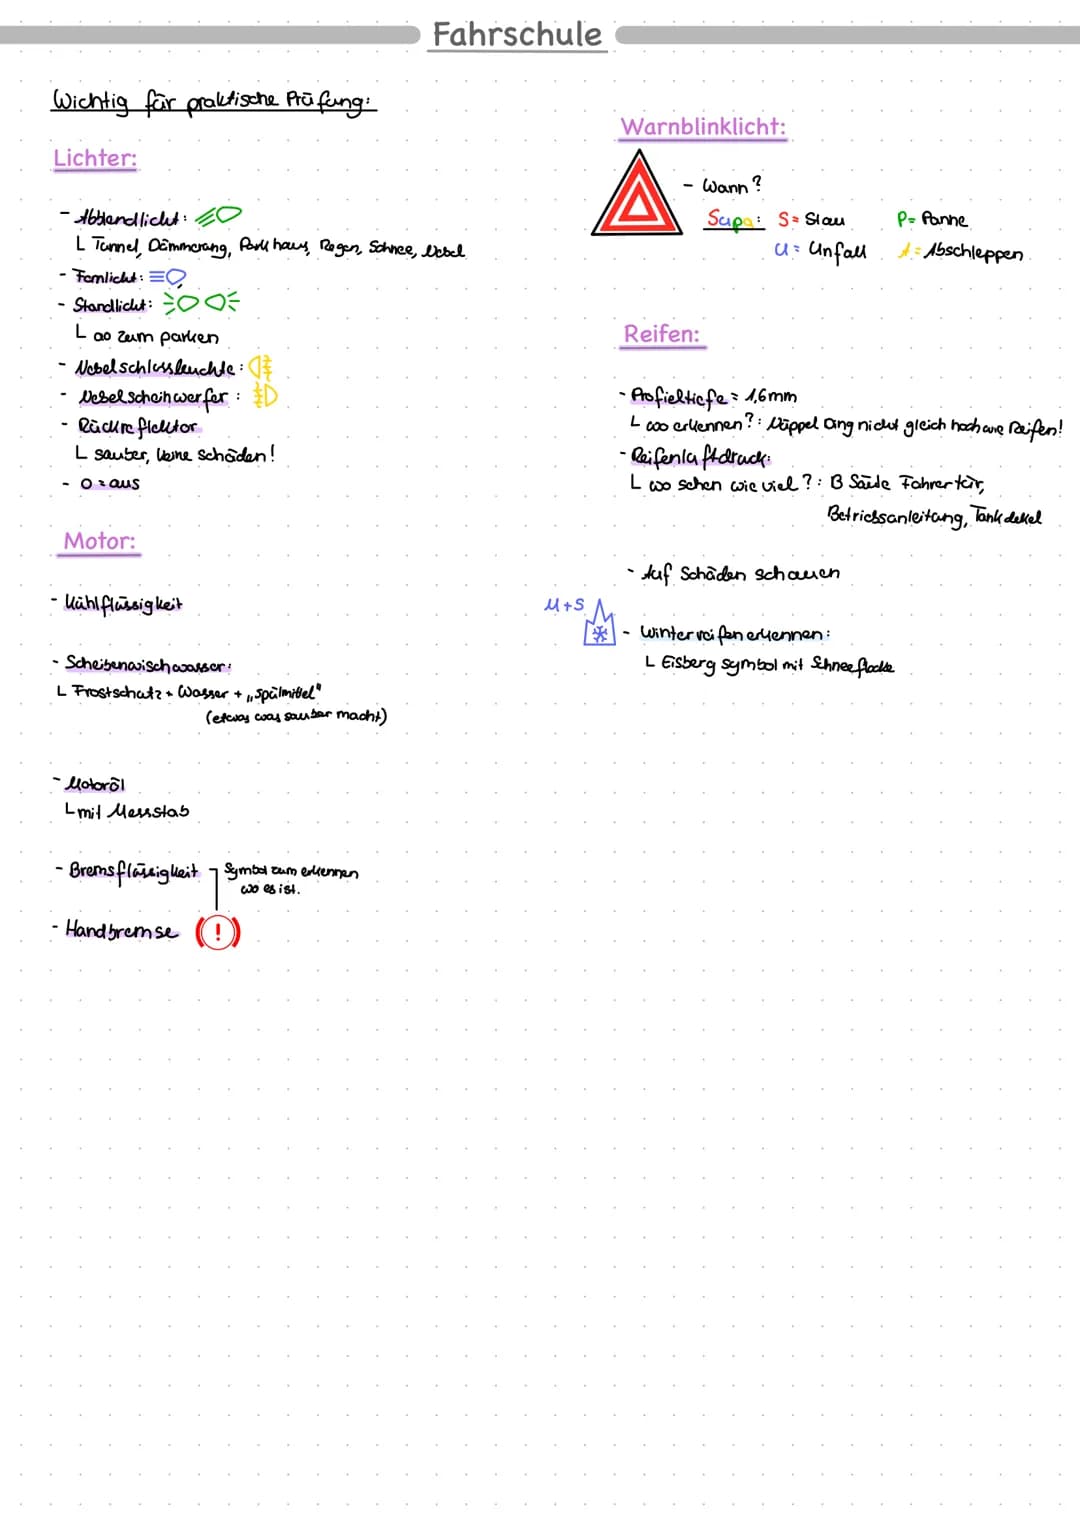 Fahrschule
Wichtig für praktische Prüfung:
Lichter:
- Abblendlicht:
L Tunnel, Dämmerung, Parkhaus, Regen, Schnee, Nebel
- Fernlicht:
- Standlicht:
L ao zum parken
- Nebelschlussleuchte:
- Nebelscheinwerfer:
- Rückreflektor
L sauber, keine Schäden!
- O = aus
Motor:
- Kühlflüssigkeit
- Scheibenwischwasser:
L Frostschutz + Wasser + „Spülmittel"
(etwas was sauber macht)
- Motoröl
L mit Messstab
- Bremsflüssigkeit
Symbol zum erkennen
wo es ist.
- Handbremse (!)
Warnblinklicht:
- Wann?
Supa: S = Stau P = Panne
U = Unfall A = Abschleppen
Reifen:
- Profieltiefe = 1,6mm
L woo erkennen?: Nüppel Ding nicht gleich hoch wie Reifen!
- Reifenluftdruck:
L wo sehen wie viel?: B Säule Fahrertür,
Betriebsanleitung, Tankdekel
- Auf Schäden schauen
M+S
- Winterreifen erkennen:
L Eisberg symbol mit Schneeflocke